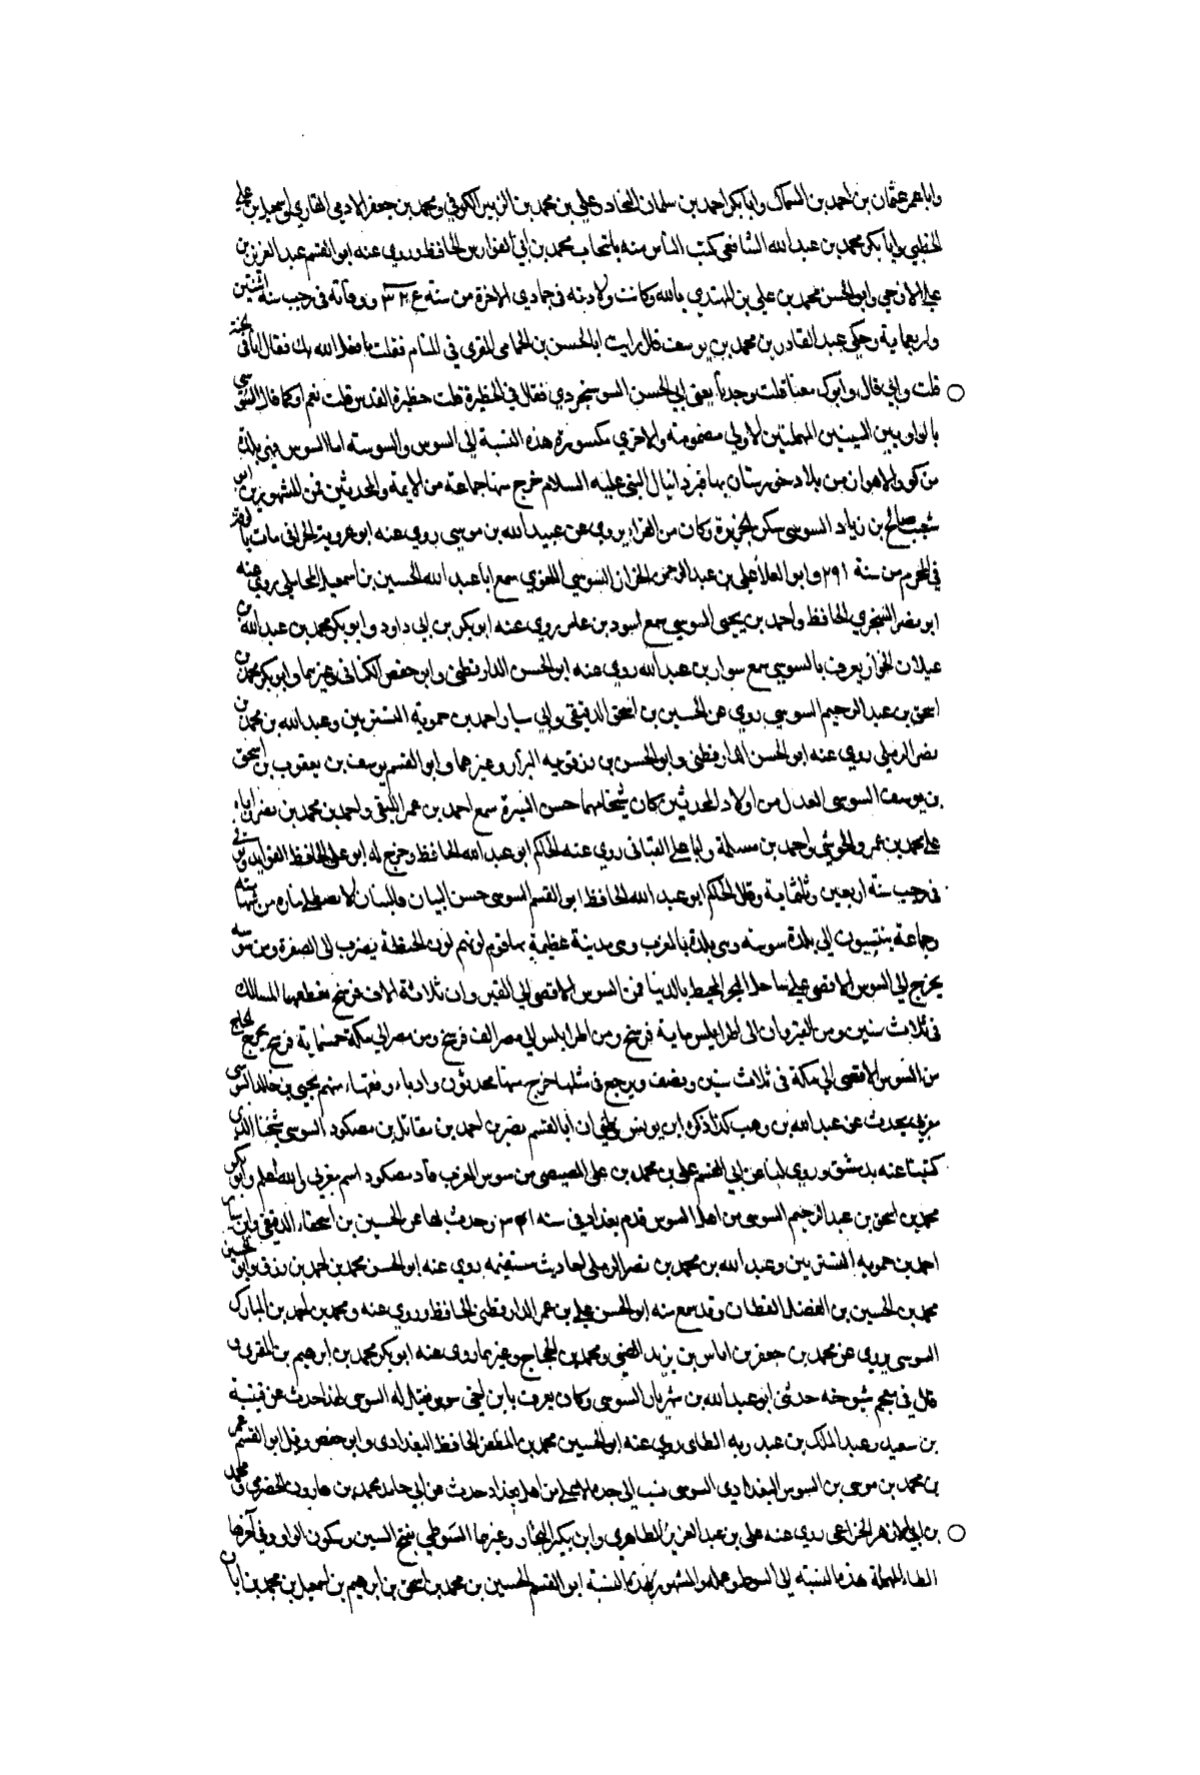 وابا عمر عثمان بن احمد بن السماك وابا بكر احمد بن سلمان النجاد وعلي بن محمد بن الزبير الكوفي ومحمد بن جعفر الادمي القاري واسمعيل بن علي
الخطبي وابا بكر محمد بن عبد الله الشافعي كتب الناس منه بانتخاب محمد بن ابي الفوارس الحافظ وروي عنه ابو القسم عبد العزيز بن
علي الازجي وابو الحسن محمد بن علي بن المهتدي بالله وكانت ولادته في جمادي الاخرة من سنة ووفاته في رجب سنة اثنتين
واربعماية وحكي عبد القادر بن محمد بن يوسف قال رايت ابا الحسن بن الحمامي المقري في المنام فقلت ما فعل الله بك فقال انا في الجنة
قلت وابي قال وابوك معنا قلت وجدنا يعني ابي الحسن السوسنجردي فقال في الحظيرة قلت حظيرة القدس قلت نعم او كما قال السوسي
بالواو بين السينين المهملتين الاولي مضمومة والاخري مكسورة هذه النسبة الي السوس والسوسة اما السوس فهي بلدة
من كور الاهواز من بلاد خوزستان بها قبر دانيال النبي عليه السلام خرج منها جماعة من الايمة والمحدثين فمن المشهورين ابو
شعيب صالح بن زياد السوسي سكن الجزيرة وكان من القراء يروي عن عبيد الله بن موسي روي عنه ابو عروبة الحراني مات بالرقة
في المحرم من سنة ٢٩١ وابو العلا علي بن عبد الرحمن الخزاز السوسي اللغوي سمع ابا عبد الله الحسين بن اسمعيل المحاملي روي عنه
ابو نصر السجزي الحافظ واحمد بن يحيي السوسي سمع اسود بن عامر روي عنه ابو بكر بن ابي داود وابو بكر محمد بن عبد الله بن
غيلان الخزاز يعرف بالسوسي سمع سوار بن عبد الله روي عنه ابو الحسن الدارقطني وابن حفص الكتاني وغيرهما وابو بكر محمد بن
اسحق بن عبد الرحيم السوسي روي عن الحسين بن اسحق الدقيقي وابي سيار احمد بن حموية التستريين وعبد الله بن محمد بن
نصر الرملي روي عنه ابو الحسن الدارقطني وابو الحسن بن رزقويه البزار وغيرهما وابو القسم يوسف بن يعقوب بن اسحق
بن يوسف السوسي العدل من اولاد المحدثين كان شيخا مهما حسن السيرة سمع احمد بن عمر واحمد بن محمد بن نصر وابا
علي محمد بن عمرو الحرشي واحمد بن مسلمة وابا علي القباني روي عنه الحاكم ابو عبد الله الحافظ وخرج له ابو علي الحافظ الفوايد وتوفي
في رجب سنة اربعين وثلثماية وقال الحاكم ابو عبد الله الحافظ ابو القسم السوسي حسن البيان
وجماعة ينتسبون الي بلدة سوسه وهي بلدة بالمغرب وهي مدينة عظيمة بها قوم لونهم لون الحنطة يضرب الي الصفرة ومن سوسه
يخرج الي السوس الاقصي علي ساحل البحر المحيط بالدنيا فمن السوس الاقصي الي القيروان ثلاثة الاف فرسخ يقطعها المسالك
في ثلاث سنين ومن القيروان الي اطرابلس ماية فرسخ ومن اطرابلس الي مصر الف فرسخ ومن مصر الي مكة خمسماية فرسخ يخرج الحاج
من السوس الاقصي الي مكة في ثلاث سنين ونصف ويرجع في مثلها خرج منها محدثون وادباء وفقهاء منهم يحيي بن خالد السوسي
مغربي يحدث عن عبد الله بن وهب كذا ذكره ابن يونس وظني ان ابا القسم نصر بن احمد بن مقاتل بن مصكود السوسي شيخنا الذي
كتبنا عنه بدمشق وروي لنا عن ابي القسم علي بن محمد بن علي المصيصي من سوس المغرب فان مصكود اسم مغربي والله اعلم وابو بكر
محمد بن اسحق بن عبد الرحيم السوسي من اهل السوس قدم بغداد في سنة وحدث بها عن الحسين بن اسحاق الدقيقي وابي سيار
احمد بن حمويه التستريين وعبد الله بن محمد بن نصر الرملي احاديث مستقيمة روي عنه ابو الحسن محمد بن احمد بن رزق وابو الحسين
محمد بن الحسين بن الفضل القطان وقد سمع منه ابو الحسن علي بن عمر الدارقطني الحافظ وروي عنه ومحمد بن احمد بن المبارك
السوسي يروي عن محمد بن جعفر بن اياس بن يزيد الضبي ومحمد بن الحجاج وغيرهما روي عنه ابو بكر محمد بن ابرهيم بن المقري و
قال في معجم شيوخه حدثني ابو عبد الله بن شريال السوسي وكان يعرف بابن اخي سوس فيقال له السوسي لهذا حدث عن قتيبة
بن سعيد وعبد الملك بن عبد ربه الطاي روي عنه ابو الحسين محمد بن المظفر الحافظ البغدادي وابو حفص وقيل ابو القسم عمر
بن محمد بن موسي بن السوس البغدادي السوسي نسب الي جده الاعلي من اهل بغداد حدث عن ابي حامد محمد بن هارون الحضرمي ومحمد
بن ابي الازهر الخزاعي روي عنه علي بن عبد العزيز الطاهري وابن بكير النجار وغيرهما السوطي بفتح السين وسكون الواو وفي آخرها
الطاء المهملة هذه النسبة الي السوط وعمله والمشهور بهذه النسبة ابو القسم الحسين بن محمد بن اسحق بن ابرهيم بن اسمعيل بن محمد بن ابان